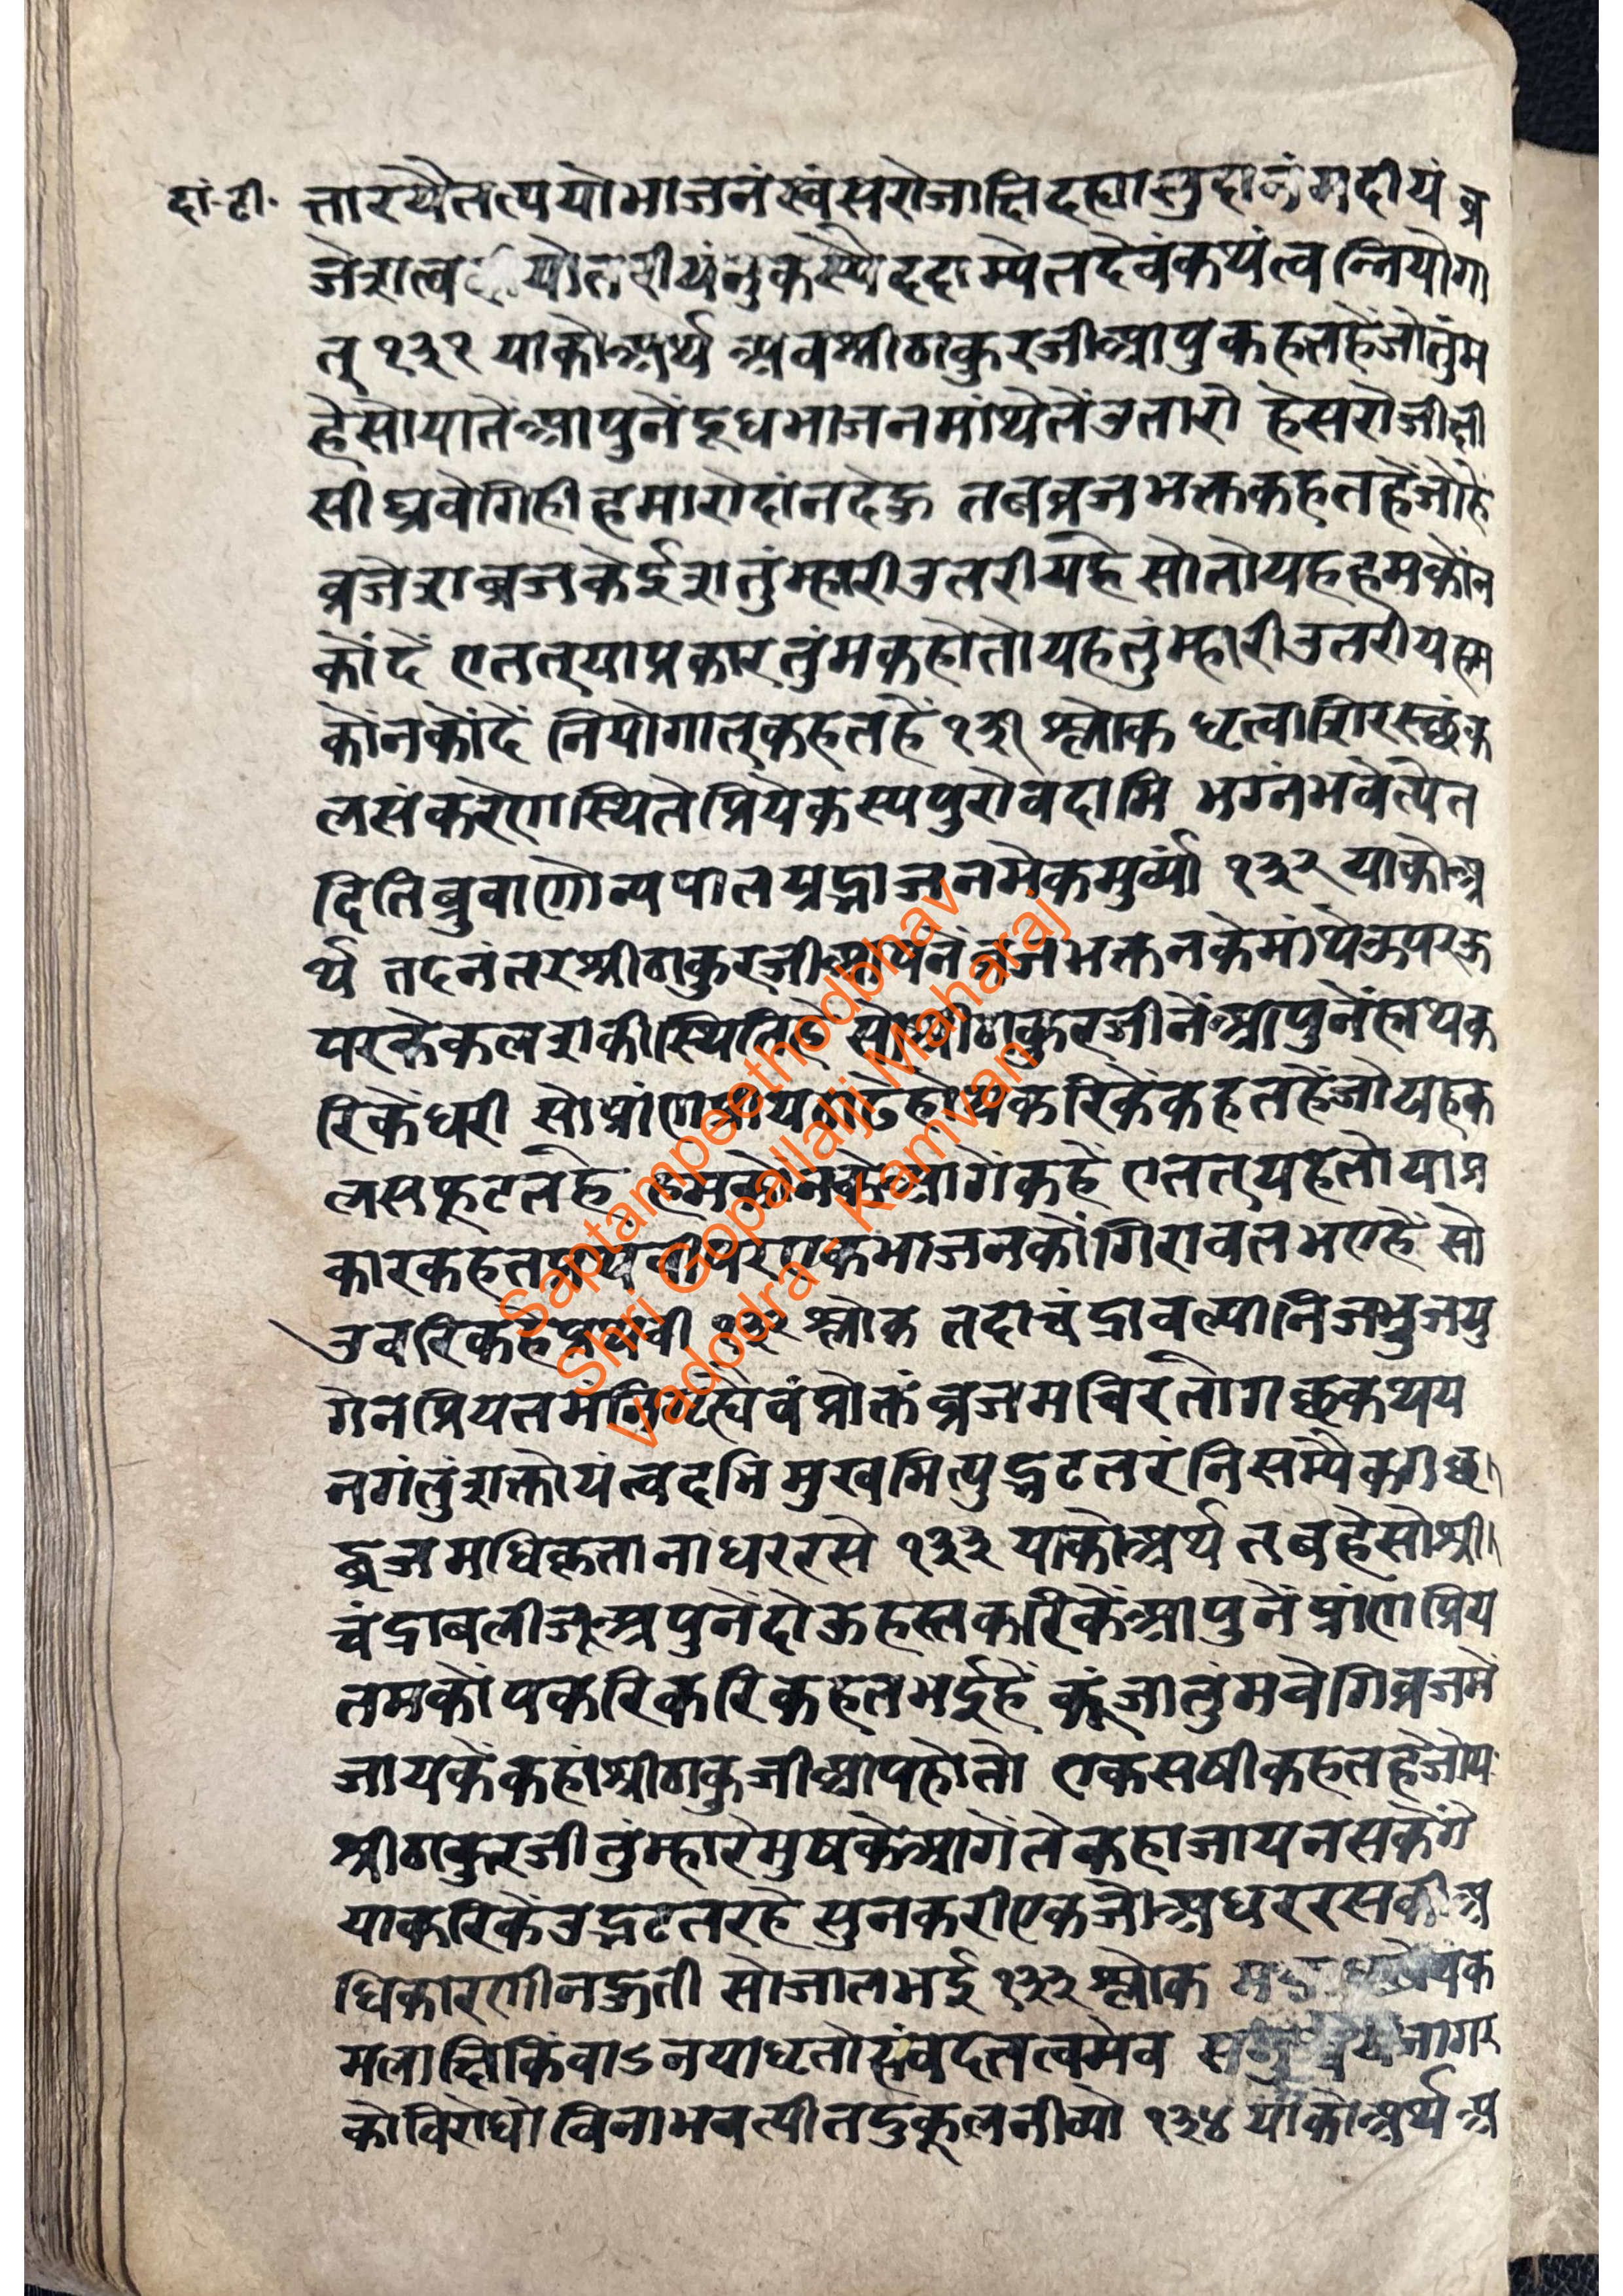 दां-टी. त्तारयैतत्पयोभाजनं स्वं सरोजाक्षि दह्यासुदानं मदीयं व्र
जेशत्व यो तरीयंनुकस्यै ददाम्येतदेवंकथंत्व न्नियोगा
त् १३१ याकोअर्थ अवश्रीठाकुरजीआपुकहतहेंजोतुंम
हैसोयातेंआपुनेंदूधभाजनमांथेलेंउतारो हेसरोजाक्षी
सीघ्रवेगिहीहमारोदांनदेऊ तबव्रजभक्तकहतहेंजोहे
व्रजेशव्रजकेईशतुंम्हारीउतरीयहै सोतोयहहमकोंन
कोंदें एतत्याप्रकारतुंमकहोतोयहतुंम्हारीउतरीयहम
कोंनकोंदें नियोगात्कहतहें १३१ श्लोक धृत्वाशिरस्छंक
लसंकरेणस्थितेप्रियेकस्यपुरोवदामि भग्नंभवेत्येत
दितिब्रुवाणोन्यपातयद्भाजनमेकमुर्व्यां १३२ याकोअ
र्थ तदनंतरश्रीठाकुरजीआपनेंव्रजभक्तनकेमांथेऊपरऊ
परकेकलशकीस्थितिहै सोश्रीठाकुरजीनेंआपुनेंहाथक
रिकेंधरी सोप्रांणप्रीयठाढेहोयकरिकेंकहतहेंजोयहक
लसफूटतहै हमकोंनकेआगेंकहें एतत्यहेतोयाप्र
कारकहतप्रथवीपरएकभाजनकोंगिरावतभएहें सो
उवरिकहेंप्रथवी १३२ श्लोक तदाचंद्रावल्यानिजभुजयु
गेनप्रियतमंनिगृह्येवंप्रोक्तंव्रजमचिरतोगछकथय
नगंतुंशक्तोयंत्वदभिमुखमित्युद्भटतरंनिसम्यैकगछ
द्व्रजमधिकृतानाधररसे १३३ याकोअर्थ तबहेसोश्री
चंद्राबलीजूअपुनेंदोऊहस्तकरिकेंआपुनेंप्रांणप्रिय
तमकोंपकरिकरिकहतभईहें कूंजातुंमवेगिव्रजमें
जायकेंकहांश्रीठाकुजीआपहोतो एकसषीकहतहैजोय
श्रीठाकुरजीतुंम्हारेमुषकेआगेंतेंकहाजायनसकेंगे
याकरिकेंउद्भटतरहै सुनकरीएकजोअधररसकीअ
धिकारणीनहुती सोजातभई १३३ श्लोक
मलाक्षिकिंवाऽनयाधृतोसंवदतत्वमेव नागर
कोविरोधोविनाभवत्पीतदुकूलनीव्यो १३४ याकोअर्थ अ
Saptampeethodbhav
Shri Gopallalji Maharaj
Vadodra - Kamvan